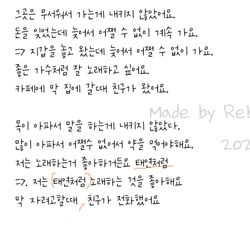 그곳은 무서워서 가는게 내키지 않았어요.
돈을 잊었는데 늦어서 어쩔 수 없이 계속 가요.
=> 지갑을 놓고 왔는데 늦어서 어쩔 수 없이 가요.
좋은 가수처럼 잘 노래하고 싶어요.
카페에 막 집에 갈때 친구가 왔어요.
Made by Reb
목이 아파서 말을 하는게 내키지 않았다.
많이 아파서 어쩔수 없어서 약을 먹어야해요.
202
저는 노래하는거 좋아하거든요 태연처럼
=>. 저는 (태연처럼) 노래하는 것을 좋아해요
막 자려고할때, 친구가 전화했어요